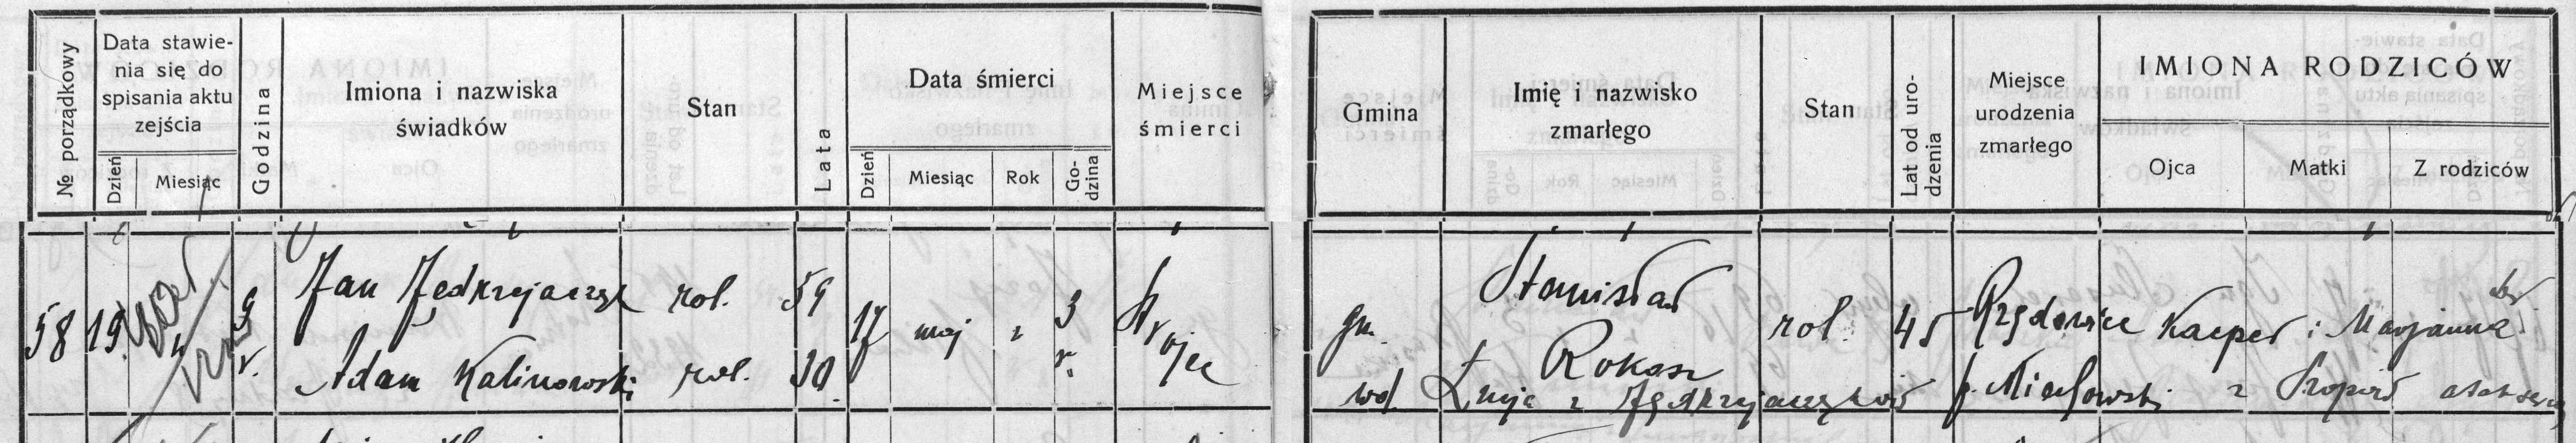 № porządkowy
Data stawienia się do spisania aktu zejścia
Dzień
Miesiąc
Godzina
Imiona i nazwiska
świadków
Stan
Lata
Data śmierci
Dzień
Miesiąc
Rok
Godzina
Miejsce
śmierci
Gmina
Imię i nazwisko
zmarłego
Stan
Lat od urodzenia
Miejsce
urodzenia
zmarłego
IMIONA RODZICÓW
Ojca
Matki
Z rodziców
58 19 9 r. Jan Jędrzejaczyk rol. 59 17 maj 3 r.
Adam Kalinowski rol. 30
gm. Stanisław Rokosz rol. 45 Rzędowice Kacper i Marjanna
wd. z p. Miechowski z